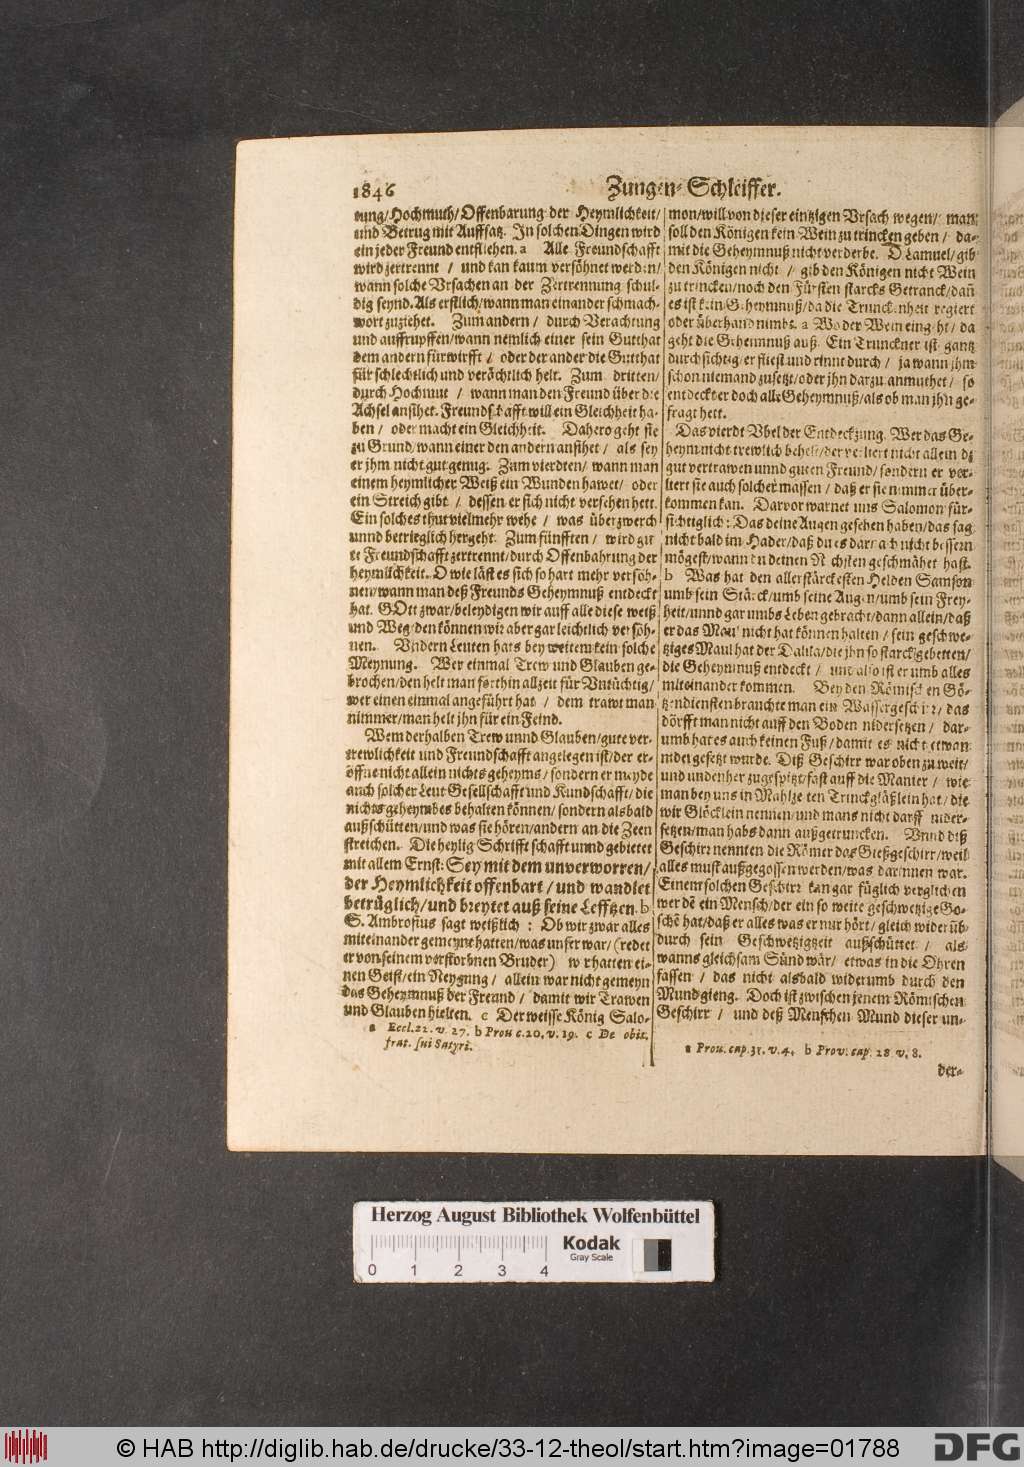 1846
Zungen-Schleiffer.
tung/Hochmuth/Offenbarung der Heymlichkeit/
und Betrug mit Auffsatz. In solchen Dingen wird
ein jeder Freund entfliehen. a Alle Freundschafft
wird zertrennt / und kan kaum versöhnet werden/
wann solche Vrsachen an der Zertrennung schul-
dig seynd. Als erstlich/wann man einander schmach-
wort zuziehet. Zum andern / durch Verachtung
und auffrupffen/wann nemlich einer sein Gutthat
dem andern fürwirfft / oder der ander die Gutthat
für schlechtlich und verächtlich helt. Zum dritten/
durch Hochmut / wann man den Freund über die
Achsel ansihet. Freundschafft will ein Gleichheit ha-
ben / oder macht ein Gleichheit. Dahero geht sie
zu Grund/wann einer den andern ansihet / als sey
er jhm nicht gut genug. Zum vierdten/wann man
einem heymlicher Weiß ein Wunden hawet/ oder
ein Streich gibt / dessen er sich nicht versehen hett.
Ein solches thut vielmehr wehe / was überzwerch
unnd betrieglich hergeht. Zum fünfften / wird gu-
te Freundschafft zertrennt/durch Offenbahrung der
heymlichkeit. O wie läst es sich so hart mehr versöh-
nen/wann man deß Freunds Geheymnuß entdeckt
hat. GOtt zwar/beleydigen wir auff alle diese weiß
und Weg/den können wir aber gar leichtlich versöh-
nen. Vndern Leuten hats bey weitem kein solche
Meynung. Wer einmal Trew und Glauben ge-
brochen/den helt man forthin allzeit für Vntüchtig/
wer einen einmal angeführt hat / dem trawt man
nimmer/man helt jhn für ein Feind.
Wem derhalben Trew unnd Glauben/gute ver-
trewlichkeit und Freundschafft angelegen ist/der er-
öffne nicht allein nichts geheyms/sondern er meyde
auch solcher Leut Gesellschafft und Kundschafft/die
nichts geheymbes behalten können/sondern alsbald
außschütten/und was sie hören/andern an die Zeen
streichen. Die heylig Schrifft schafft unnd gebietet
mit allem Ernst: Sey mit dem unverworren/
der Heymlichkeit offenbart / und wandlet
betrüglich/und breytet auß seine Lefftzen. b
S. Ambrosius sagt weißlich : Ob wir zwar alles
miteinander gemeyn hatten/was unser war/(redet
er von seinem verstorbnen Bruder) wir hatten ei-
nen Geist/ein Neygung / allein war nicht gemeyn
das Geheymnuß der Freund / damit wir Trawen
und Glauben hielten. c Der weisse König Salo-
a Eccl.22. v. 27. b Prou c.20. v. 19. c De obit.
frat. sui Satyri.
mon/will von dieser eintzigen Vrsach wegen/ man
soll den Königen kein Wein zu trincken geben / da-
mit die Geheymnuß nicht verderbe. O Lamuel/gib
den Königen nicht / gib den Königen nicht Wein
zu trincken/noch den Fürsten starcks Getranck/dañ
es ist kein Geheymnuß/da die Trunckenheit regiert
oder überhand nimbt. a Wo der Wein eingeht/ da
geht die Geheimnuß auß. Ein Trunckner ist gantz
durchsichtig/er fliest und rinnt durch / ja wann jhm
schon niemand zusetzt/oder jhn darzu anmuthet/ so
entdeckt er doch alle Geheymnuß/als ob man jhn ge-
fragt hett.
Das vierdt Vbel der Entdeckung. Wer das Ge-
heym nicht trewlich behelt/der verliert nicht allein dz
gut vertrawen unnd guten Freund/ sondern er ver-
liert sie auch solcher massen / daß er sie nimmer über-
kommen kan. Darvor warnet uns Salomon für-
sichtiglich: Das deine Augen gesehen haben/das sag
nicht bald im Hader/daß du es darnach nicht bessern
mögest/wann du deinen Nechsten geschmähet hast.
b Was hat den allerstärckesten Helden Samson
umb sein Stärck/umb seine Augen/umb sein Frey-
heit/unnd gar umbs Leben gebracht/dann allein/daß
er das Maul nicht hat können halten / sein geschwe-
tziges Maul hat der Dalila/die jhn so starck gebetten/
die Geheymnuß entdeckt / und also ist er umb alles
miteinander kommen. Bey den Römischen Gö-
tzendiensten brauchte man ein Wassergeschirr/das
dörfft man nicht auff den Boden nidersetzen / dar-
umb hat es auch keinen Fuß/damit es nicht etwan
nidergesetzt wurde. Diß Geschirr war oben zu weit/
und unden her zugespitzt/fast auff die Manier / wie
man bey uns in Mahlzeiten Trinckgläßlein hat/die
wir Glöcklein nennen/und mans nicht darff nider-
setzen/man habs dann außgetruncken. Vnnd diß
Geschirr nennten die Römer das Gießgeschirr/weil
alles must außgegossen werden/was darinnen war.
Einem solchen Geschirr kan gar füglich verglichen
werdē ein Mensch/der ein so weite geschwetzige Go-
schē hat/daß er alles was er nur hört/gleich wider üb-
durch sein Geschwetzigkeit außschüttet / als
wanns gleichsam Sünd wär/ etwas in die Ohren
fassen / das nicht alsbald widerumb durch den
Mund gieng. Doch ist zwischen jenem Römischen
Geschirr / und deß Menschen Mund dieser un-
a Prou. cap. 31. v. 4. b Prov. cap. 28. v. 8.
der-
Herzog August Bibliothek Wolfenbüttel
Kodak
Gray Scale
0 1 2 3 4
© HAB http://diglib.hab.de/drucke/33-12-theol/start.htm?image=01788
DFG